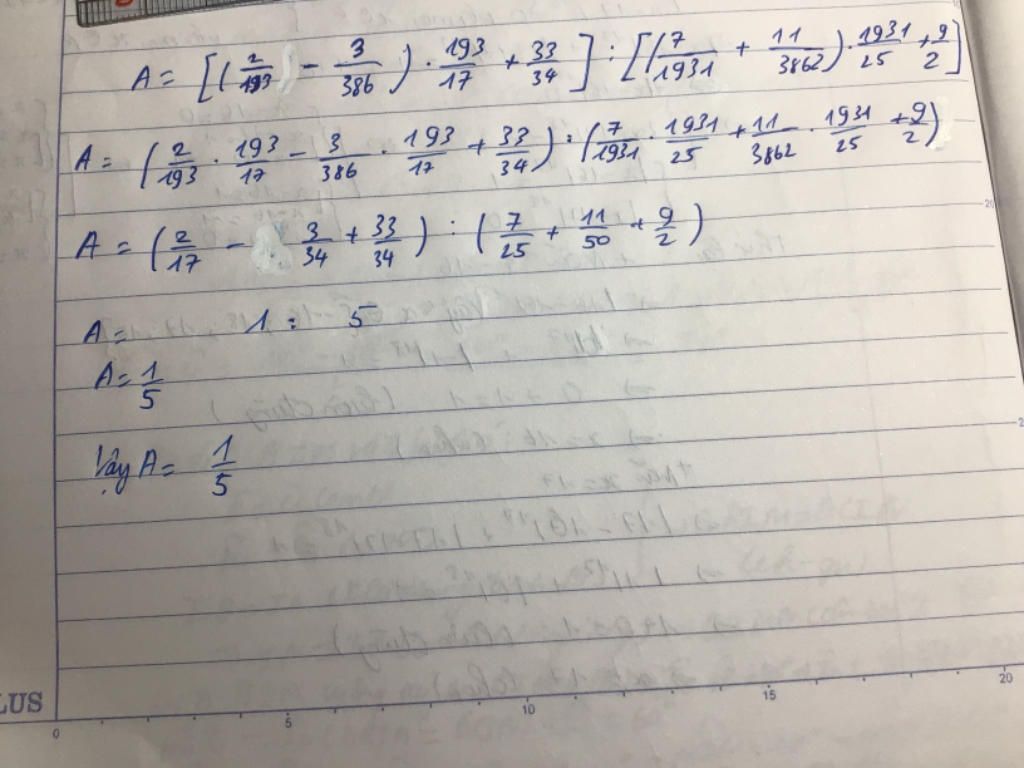 A = [(2/193 - 3/386) . 193/17 + 33/34] : [(7/1931 + 11/3862) . 1931/25 + 9/2]
A = (2/193 . 193/17 - 3/386 . 193/17 + 33/34) : (7/1931 . 1931/25 + 11/3862 . 1931/25 + 9/2)
A = (2/17 - 3/34 + 33/34) : (7/25 + 11/50 + 9/2)
A = 1 : 5
A = 1/5
Vậy A = 1/5
LUS
0 5 10 15 20